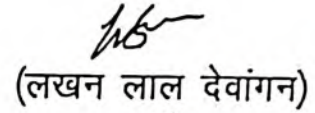 (लखन लाल देवांगन)